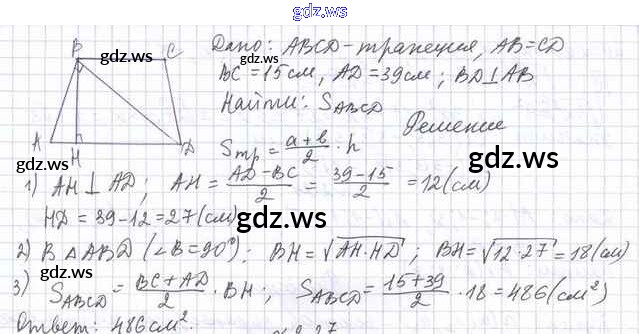 gdz.ws
B C
gdz.ws
A H D
Дано: ABCD - трапеция, AB = CD
BC = 15 см, AD = 39 см; BD ⊥ AB
Найти: S_ABCD
Решение
S_тр = (a + b)/2 · h
gdz.ws
1) AH ⊥ AD; AH = (AD - BC)/2 = (39 - 15)/2 = 12 (см)
HD = 39 - 12 = 27 (см)
gdz.ws
2) В △ABD (∠B = 90°): BH = √(AH · HD); BH = √(12 · 27) = 18 (см)
3) S_ABCD = (BC + AD)/2 · BH; S_ABCD = (15 + 39)/2 · 18 = 486 (см²)
gdz.ws
gdz.ws
Ответ: 486 см².
gdz.ws